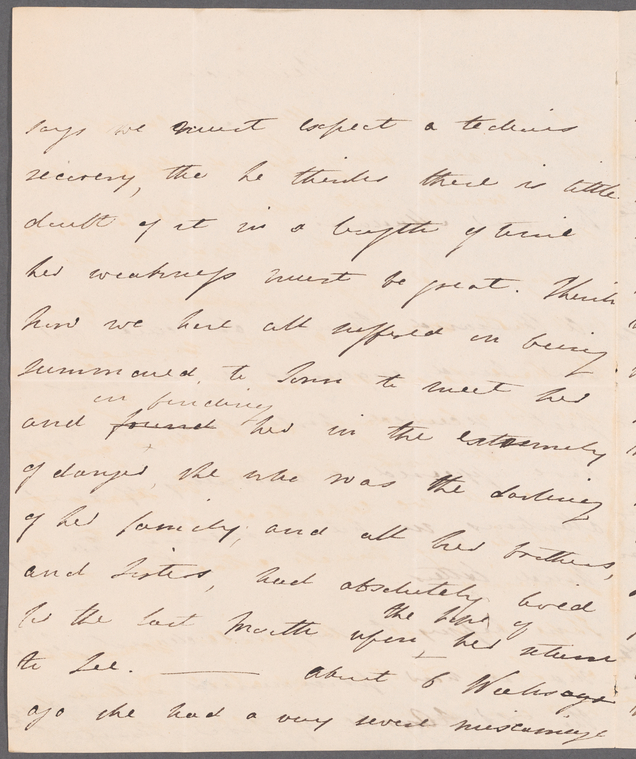 says we must expect a tedious
recovery, tho he thinks there is little
doubt of it in a length of time
her weakness must be great. Think
how we have all suffered on being
summoned to Town to meet her
on finding
and found her in the extremely
of danger, she who was the darling
of her family, and all her brothers,
and sisters, had absolutely lived
the hope of
for the last Month upon her return
to See. —— about 6 Weeks ago
ago she had a very severe miscarriage